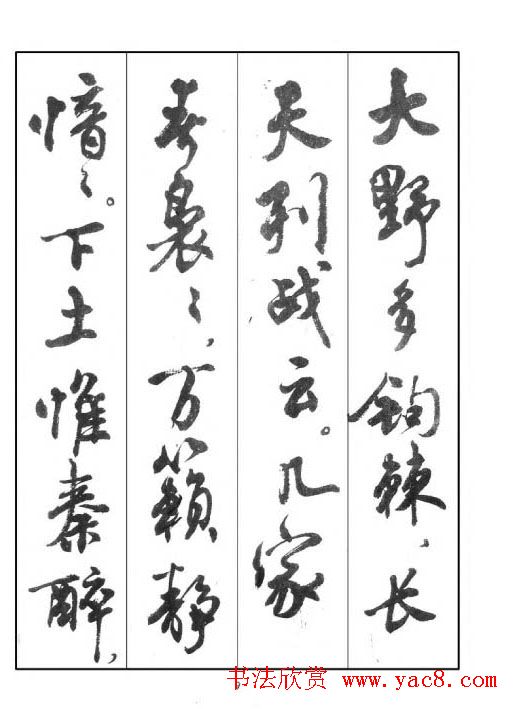 大野多钩棘，长
天列战云。几家
春袅〻，万籁静
愔〻。下土惟秦醉，
书法欣赏 www.yac8.com